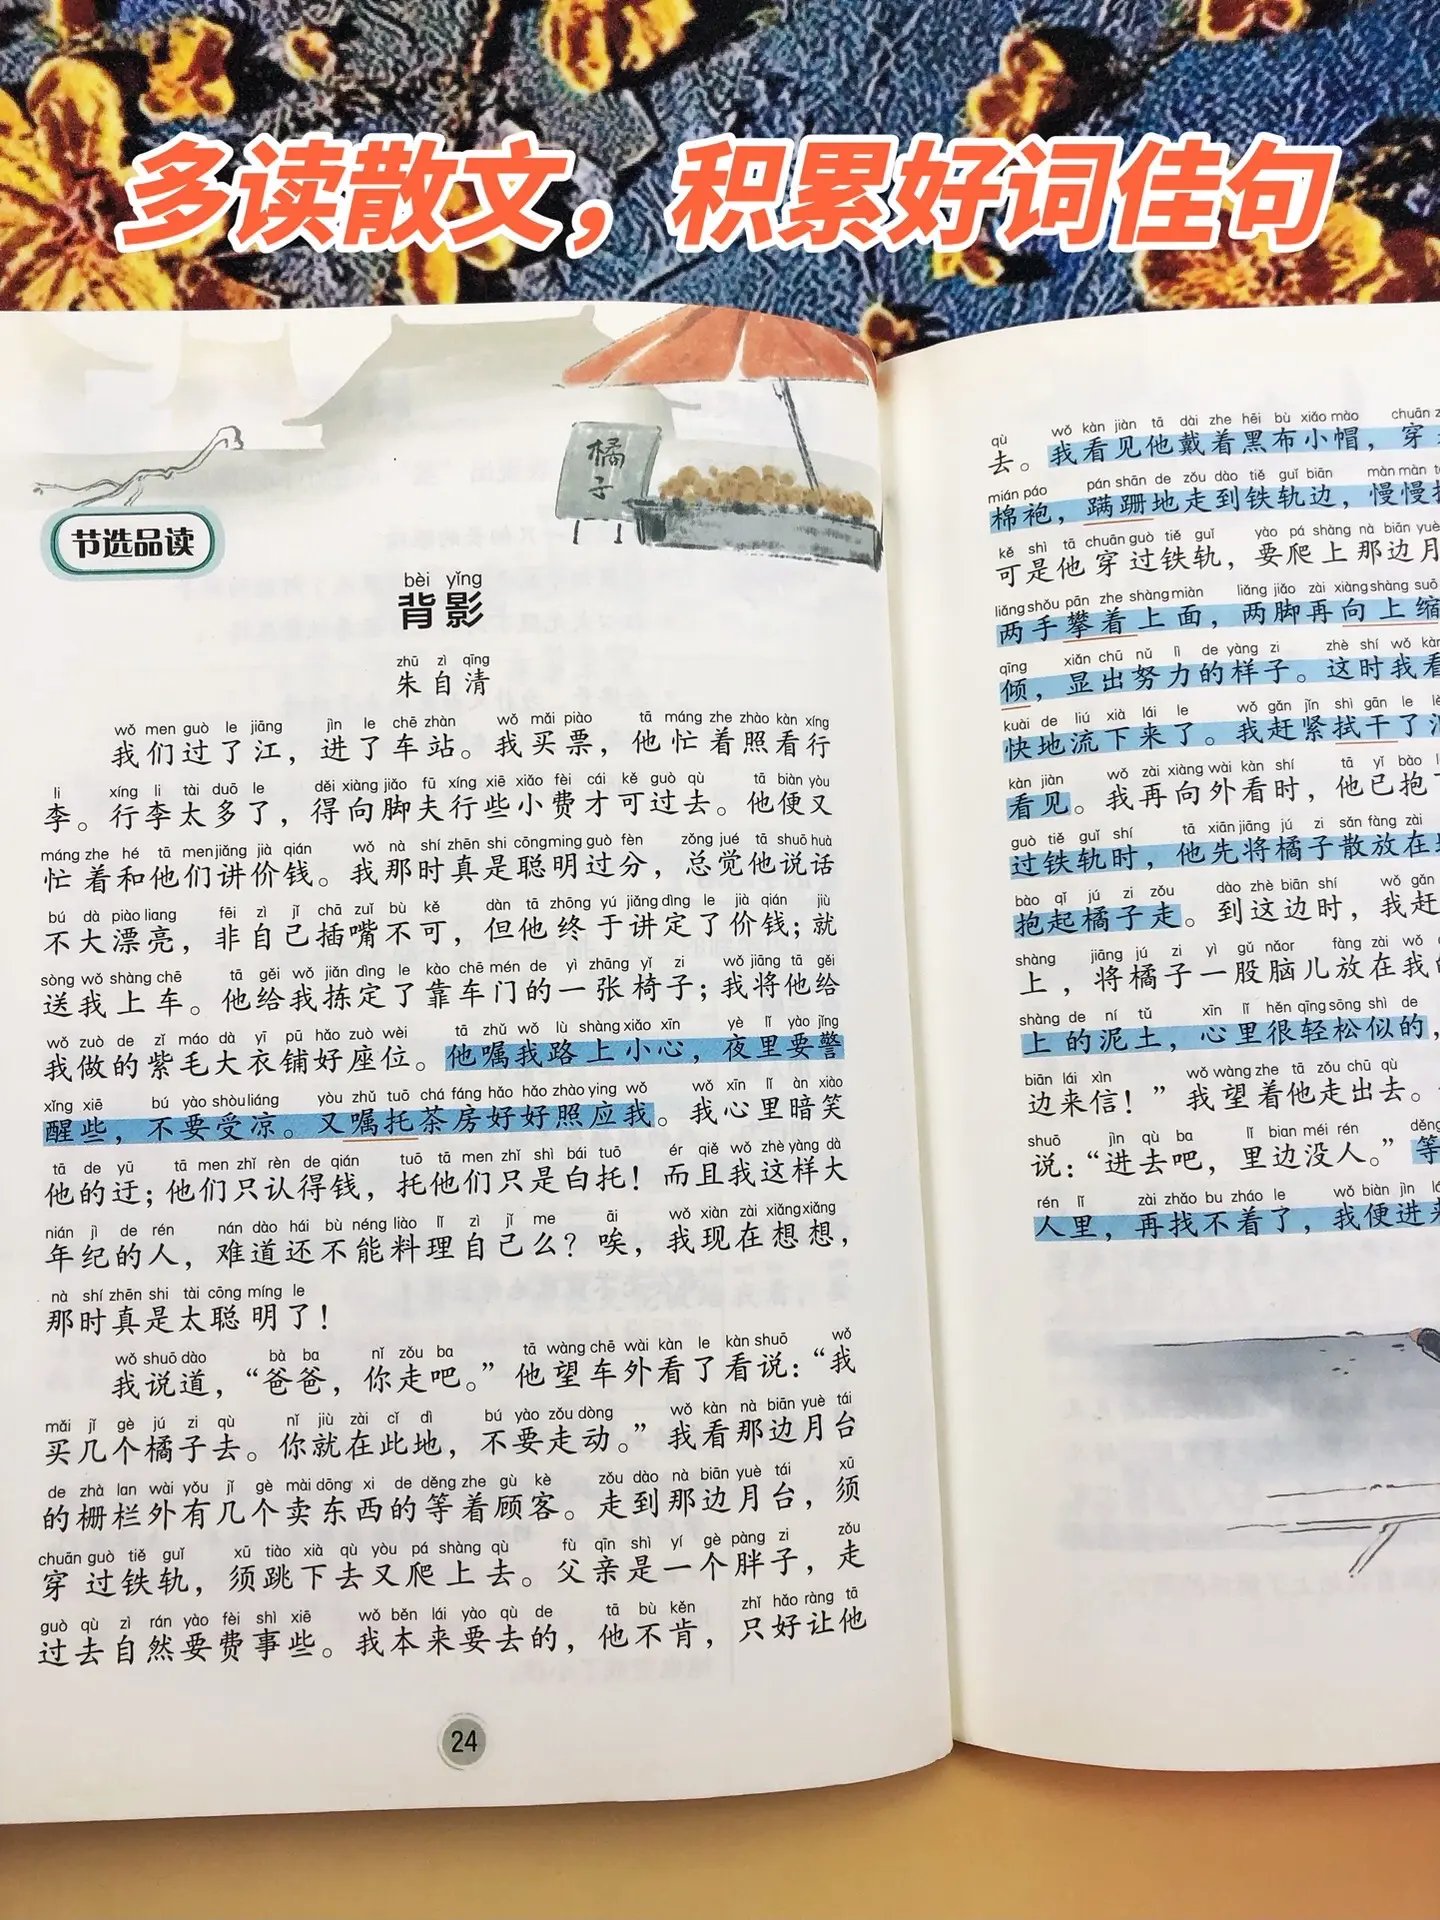 多读散文，积累好词佳句
橘子
节选品读
bèi yǐng
背影
zhū zì qīng
朱自清
wǒ men guò le jiāng jìn le chē zhàn wǒ mǎi piào tā máng zhe zhào kàn xíng
我们过了江，进了车站。我买票，他忙着照看行
li xíng li tài duō le děi xiàng jiǎo fū xíng xiē xiǎo fèi cái kě guò qù tā biàn yòu
李。行李太多了，得向脚夫行些小费才可过去。他便又
máng zhe hé tā men jiǎng jià qián wǒ nà shí zhēn shi cōng ming guò fèn zǒng jué tā shuō huà
忙着和他们讲价钱。我那时真是聪明过分，总觉他说话
bú dà piào liang fēi zì jǐ chā zuǐ bù kě dàn tā zhōng yú jiǎng dìng le jià qián jiù
不大漂亮，非自己插嘴不可，但他终于讲定了价钱；就
sòng wǒ shàng chē tā gěi wǒ jiǎn dìng le kào chē mén de yì zhāng yǐ zi wǒ jiāng tā gěi
送我上车。他给我拣定了靠车门的一张椅子；我将他给
wǒ zuò de zǐ máo dà yī pū hǎo zuò wèi tā zhǔ wǒ lù shàng xiǎo xīn yè lǐ yào jǐng
我做的紫毛大衣铺好座位。他嘱我路上小心，夜里要警
xǐng xiē bú yào shòu liáng yòu zhǔ tuō chá fáng hǎo hǎo zhào ying wǒ wǒ xīn lǐ àn xiào
醒些，不要受凉。又嘱托茶房好好照应我。我心里暗笑
tā de yū tā men zhǐ rèn de qián tuō tā men zhǐ shì bái tuō ér qiě wǒ zhè yàng dà
他的迂；他们只认得钱，托他们只是白托！而且我这样大
nián jì de rén nán dào hái bù néng liào lǐ zì jǐ me āi wǒ xiàn zài xiǎng xiǎng
年纪的人，难道还不能料理自己么？唉，我现在想想，
nà shí zhēn shi tài cōng míng le
那时真是太聪明了！
wǒ shuō dào bà ba nǐ zǒu ba tā wàng chē wài kàn le kàn shuō wǒ
我说道，“爸爸，你走吧。”他望车外看了看说：“我
mǎi jǐ gè jú zi qù nǐ jiù zài cǐ dì bú yào zǒu dòng wǒ kàn nà biān yuè tái
买几个橘子去。你就在此地，不要走动。”我看那边月台
de zhà lan wài yǒu jǐ gè mài dōng xi de děng zhe gù kè zǒu dào nà biān yuè tái xū
的栅栏外有几个卖东西的等着顾客。走到那边月台，须
chuān guò tiě guǐ xū tiào xià qù yòu pá shàng qù fù qīn shì yí gè pàng zi zǒu
穿过铁轨，须跳下去又爬上去。父亲是一个胖子，走
guò qù zì rán yào fèi shì xiē wǒ běn lái yào qù de tā bù kěn zhǐ hǎo ràng tā
过去自然要费事些。我本来要去的，他不肯，只好让他
24
qù wǒ kàn jiàn tā dài zhe hēi bù xiǎo mào chuān
去。我看见他戴着黑布小帽，穿
mián páo pán shān de zǒu dào tiě guǐ biān màn màn
棉袍，蹒跚地走到铁轨边，慢慢
kě shì tā chuān guò tiě guǐ yào pá shàng nà biān yuè
可是他穿过铁轨，要爬上那边月
liǎng shǒu pān zhe shàng miàn liǎng jiǎo zài xiàng shàng suō
两手攀着上面，两脚再向上缩
qīng xiǎn chū nǔ lì de yàng zi zhè shí wǒ kàn
倾，显出努力的样子。这时我看
kuài de liú xià lái le wǒ gǎn jǐn shì gān le
快地流下来了。我赶紧拭干了
kàn jiàn wǒ zài xiàng wài kàn shí tā yǐ bào
看见。我再向外看时，他已抱
guò tiě guǐ shí tā xiān jiāng jú zi sǎn fàng zài
过铁轨时，他先将橘子散放在
bào qǐ jú zi zǒu dào zhè biān shí wǒ gǎn
抱起橘子走。到这边时，我赶
shàng jiāng jú zi yì gǔ nǎor fàng zài wǒ
上，将橘子一股脑儿放在我
shàng de ní tǔ xīn lǐ hěn qīng sōng shì de
上的泥土，心里很轻松似的，
biān lái xìn wǒ wàng zhe tā zǒu chū qù
边来信！”我望着他走出去。
shuō jìn qù ba lǐ bian méi rén děng
说：“进去吧，里边没人。”等
rén lǐ zài zhǎo bu zháo le wǒ biàn jìn
人里，再找不着了，我便进来